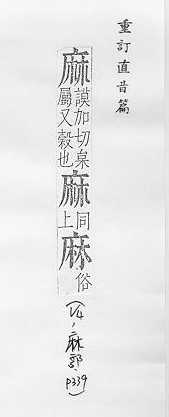 重訂直音篇
麻謨加切枲屬又穀也麻同上麻俗
(V4, 麻部, p339)